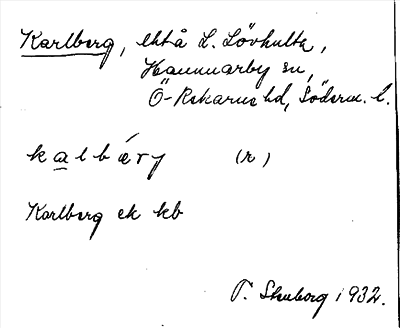 Karlberg, lht å L. Lövhulta,
Hammarby sn,
Ö-Rekarne hd, Söderm. l.
kalbæry (r)
Karlberg ek kb
1932.